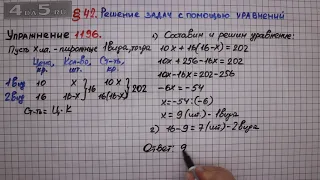 4 по 5.ru
§ 42. Решение задач с помощью уравнений
Упражнение 1196.
Пусть х шт. - пирожные 1 вида, тогда
Цена, Кол-во, Ст-ть,
кр. шт. кр.
1 вид 10 х 10х
2 вид 16 16-х 16(16-х)
16 202
Ст-ть = Ц · К
1) Составим и решим уравнение:
10х + 16(16-х) = 202
10х + 256 - 16х = 202
10х - 16х = 202 - 256
-6х = -54
х = -54 : (-6)
х = 9 (шт.) - 1 вида
2) 16 - 9 = 7 (шт) - 2 вида
Ответ: 9